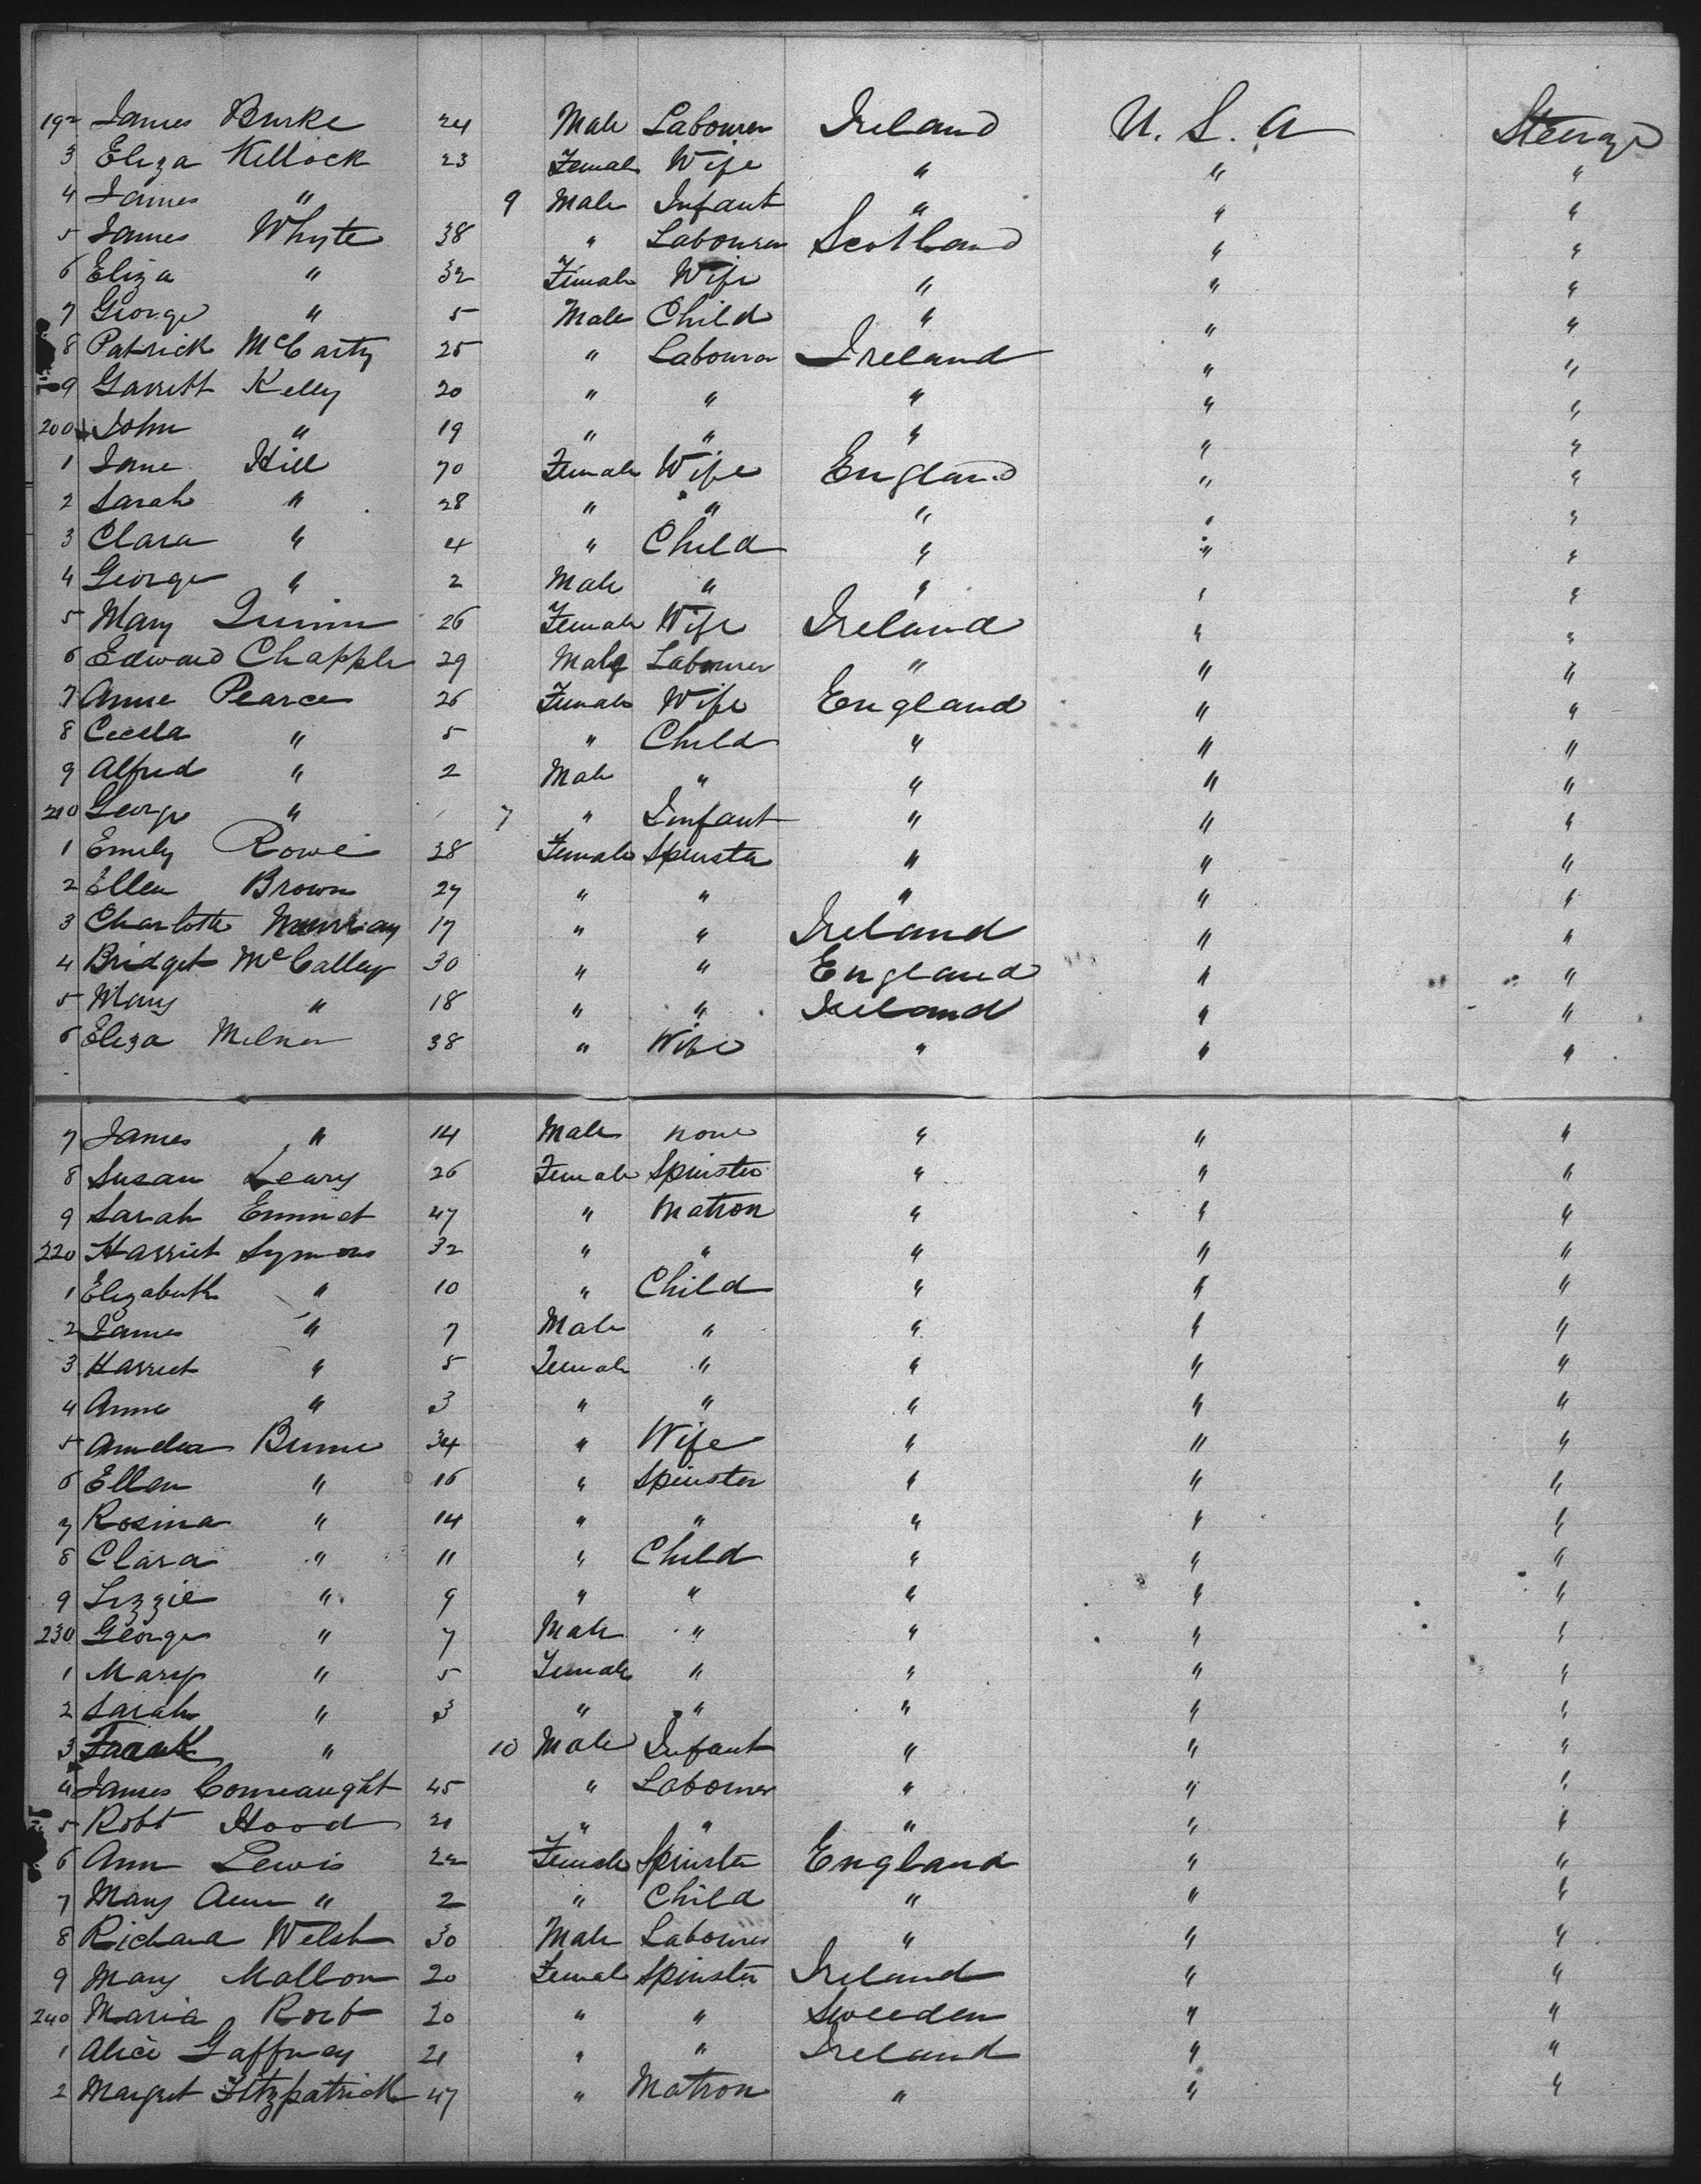 192 James Burke 24 Male Labourer Ireland U. S. A Steerage
3 Eliza Killock 23 Female Wife " " "
4 James " 9 Male Infant " " "
5 James Whyte 38 " Labourer Scotland " "
6 Eliza " 32 Female Wife " " "
7 George " 5 Male Child " " "
8 Patrick McCarty 25 " Labourer Ireland " "
9 Garrett Kelly 20 " " " " "
200 John " 19 " " " " "
1 Jane Hill 70 Female Wife England " "
2 Sarah " 28 " " " " "
3 Clara " 4 " Child " " "
4 George " 2 Male " " " "
5 Mary Quinn 26 Female Wife Ireland " "
6 Edward Chapple 29 Male Labourer " " "
7 Anne Pearce 26 Female Wife England " "
8 Cecela " 5 " Child " " "
9 Alfred " 2 Male " " " "
210 George " 7 " Infant " " "
1 Emily Rowe 38 Female Spinster " " "
2 Ellen Brown 27 " " " " "
3 Charlotte 17 " " Ireland " "
4 Bridget McCalley 30 " " England " "
5 Mary " 18 " " Ireland " "
6 Eliza Milner 38 " Wife " " "
7 James " 14 Male none " " "
8 Susan Leary 26 Female Spinster " " "
9 Sarah Emmet 47 " Matron " " "
220 Harriet Symons 32 " " " " "
1 Elizabeth " 10 " Child " " "
2 James " 7 Male " " " "
3 Harriet " 5 Female " " " "
4 Anne " 3 " " " " "
5 Amelia 34 " Wife " " "
6 Ellen " 16 " Spinster " " "
7 Rosina " 14 " " " " "
8 Clara " 11 " Child " " "
9 Lizzie " 9 " " " " "
230 George " 7 Male " " " "
1 Mary " 5 Female " " " "
2 Sarah " 3 " " " " "
3 Frank " 10 Male Infant " " "
4 James Conneaught 45 " Labourer " " "
5 Robt Hood 21 " " " " "
6 Ann Lewis 22 Female Spinster England " "
7 Mary Ann " 2 " Child " " "
8 Richard Welsh 30 Male Labourer " " "
9 Mary Mallon 20 Female Spinster Ireland " "
240 Maria 20 " " Sweeden " "
1 Alice Gaffney 21 " " Ireland " "
2 Margret Fitzpatrick 47 " Matron " " "